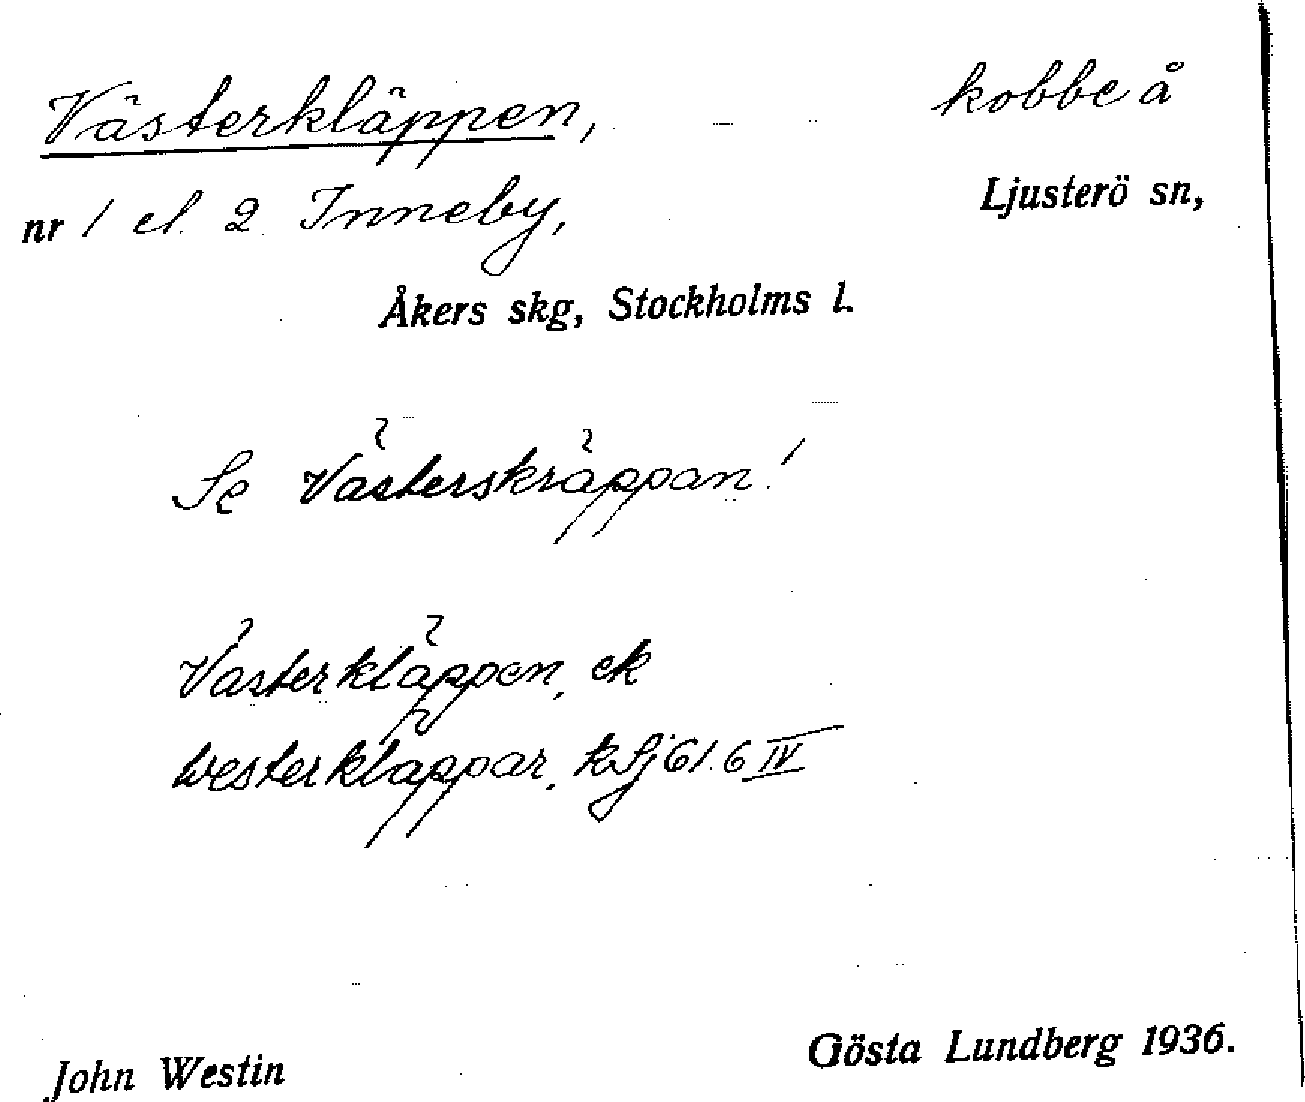 Västerkläppen, kobbe å
nr 1 el. 2 Inneby, Ljusterö sn,
Åkers skg, Stockholms l.
Se Västerskräppan!
Västerkläppen, ek
Westerkläppar, kSj 61.6 IV
John Westin Gösta Lundberg 1936.